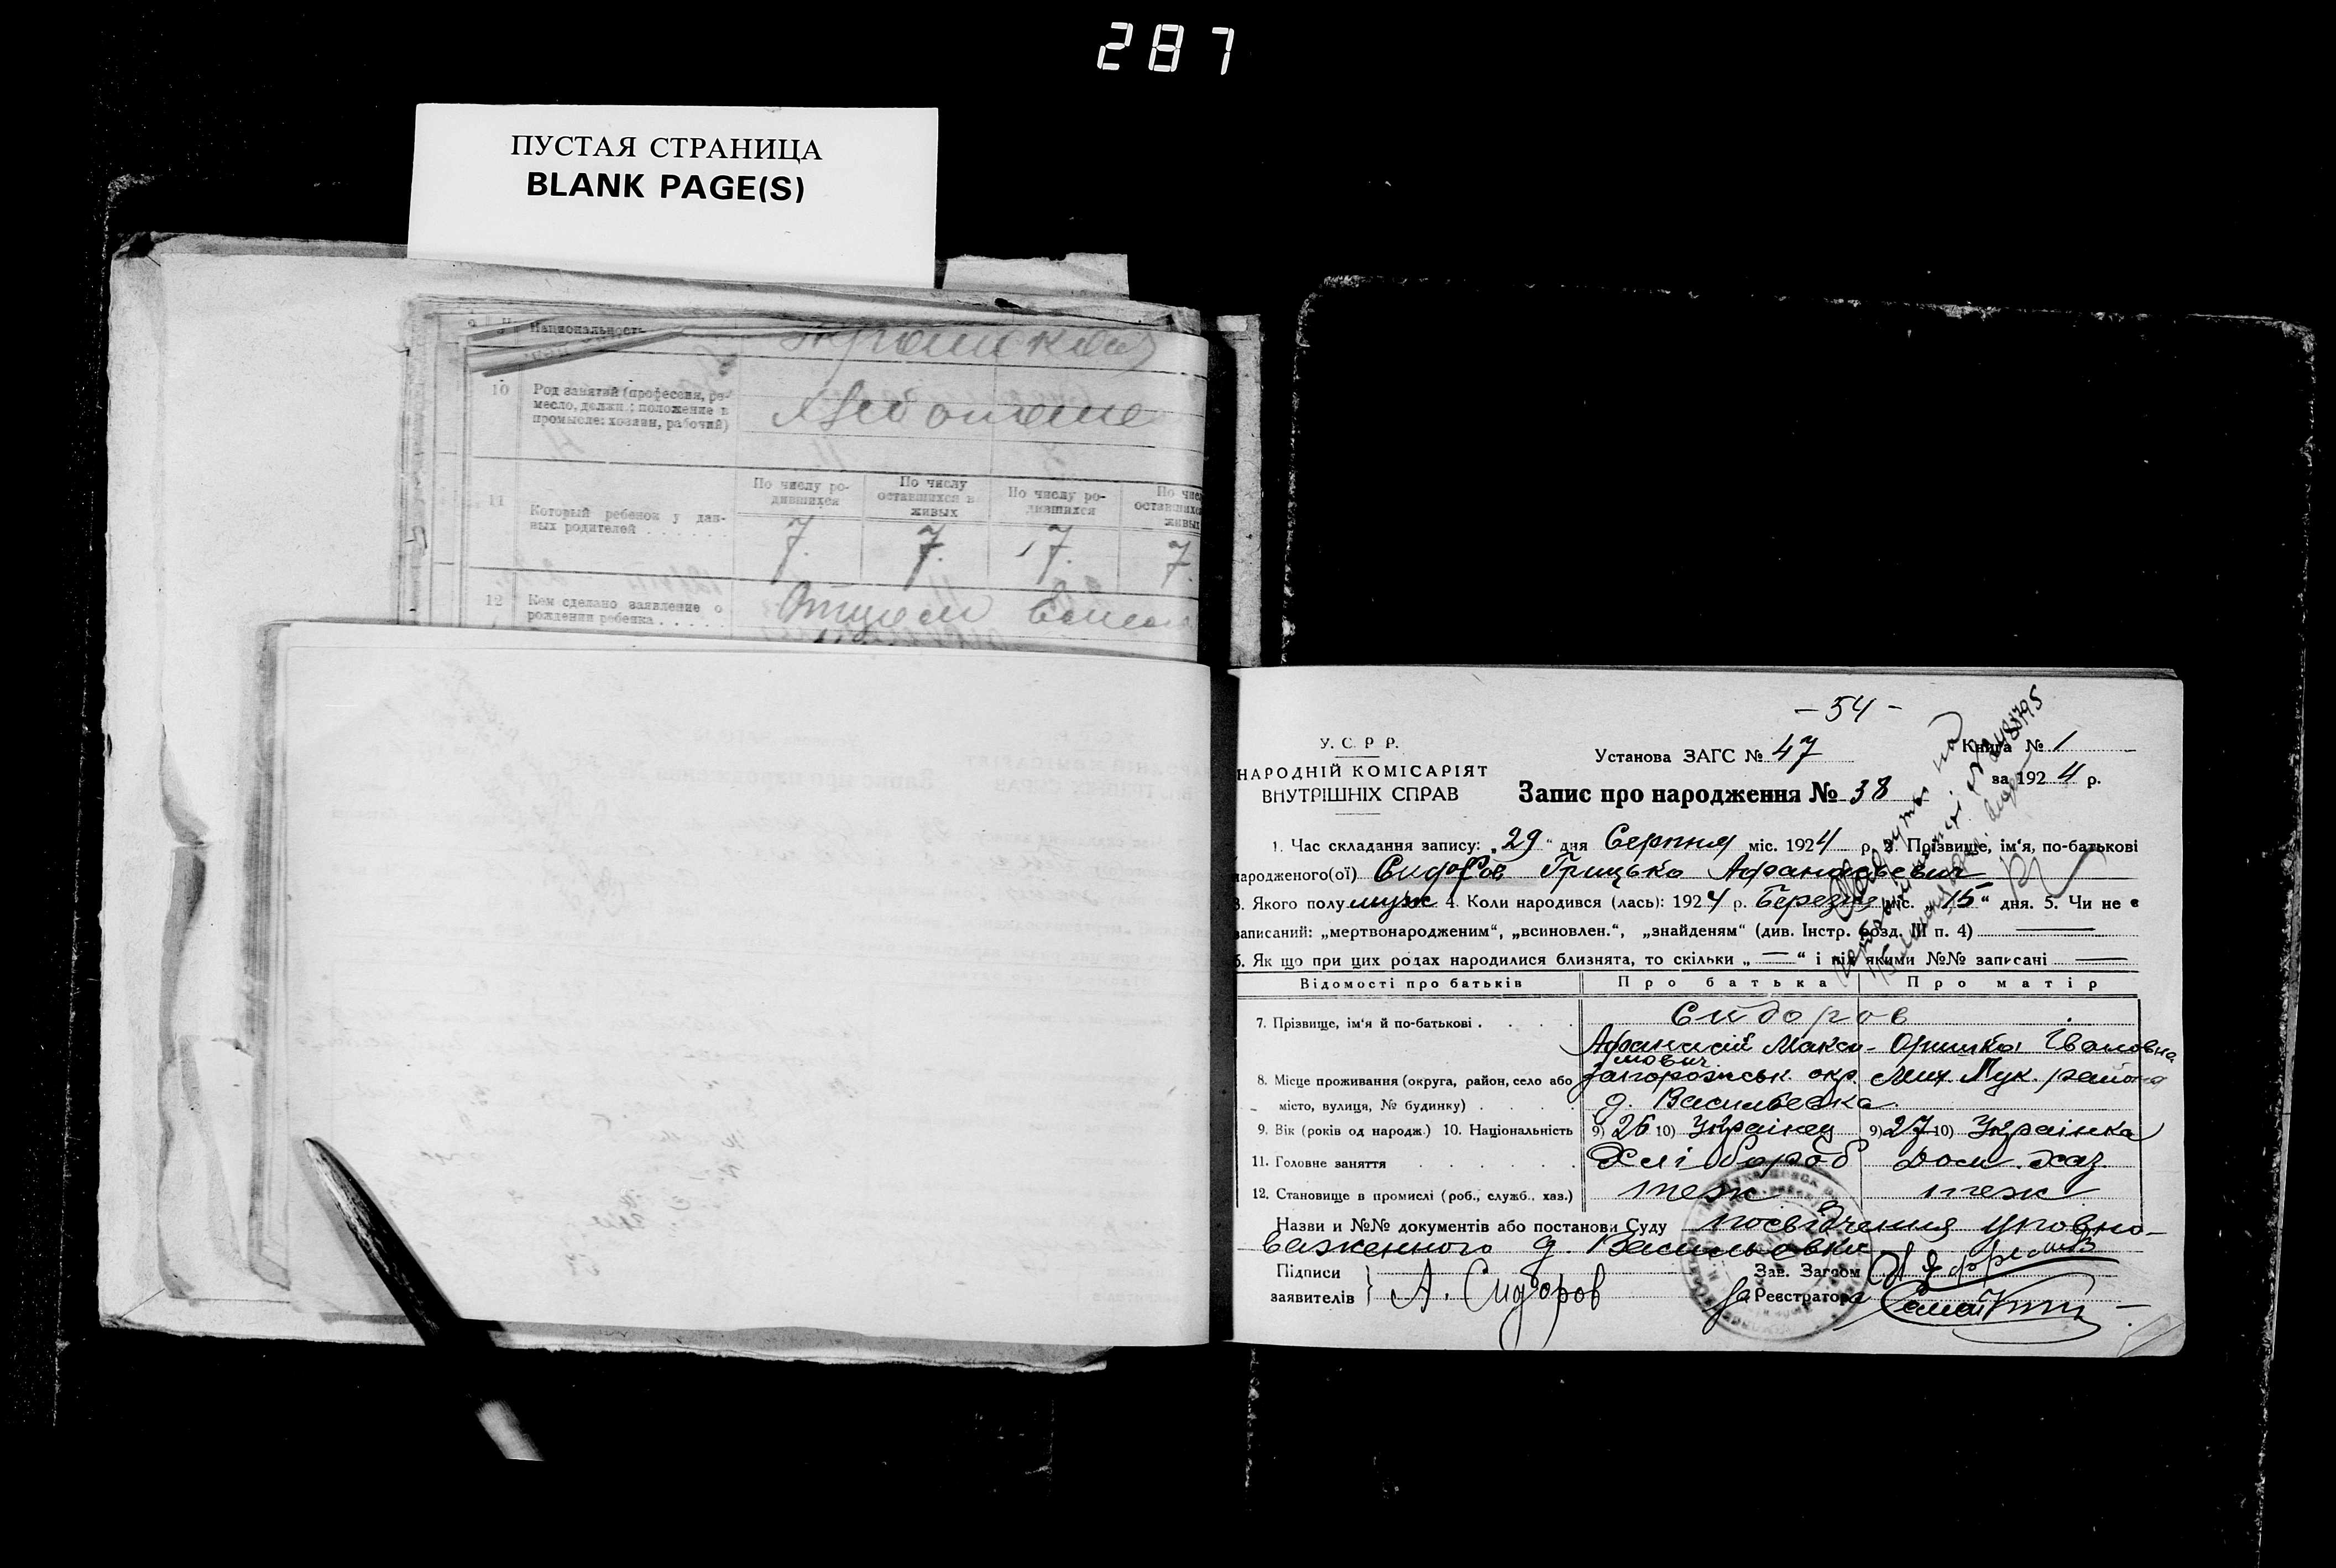 287
ПУСТАЯ СТРАНИЦА
BLANK PAGE(S)
Национальность
10 Род занятий (профессия, ре-
месло, должн.; положение в
промысле: хозяин, рабочий)
11 Который ребенок у дан-
ных родителей
По числу ро-
дившихся
По числу
оставшихся в
живых
По числу ро-
дившихся
7. 7. 7. 7.
12 Кем сделано заявление о
рождении ребенка
Отцом
- 54 -
У. С. Р. Р.
НАРОДНІЙ КОМІСАРІЯТ
ВНУТРІШНІХ СПРАВ
Установа ЗАГС № 47
Книга № 1
за 1924 р.
Запис про народження № 38
1. Час складання запису: „29“ дня Серпня міс. 1924 р. 2. Прізвище, ім'я, по-батькові
народженого(ої) Сидоров Грицько Афанасьевич
3. Якого полу муж 4. Коли народився (лась): 1924 р. Березня міс. „15“ дня. 5. Чи не є
записаний: „мертвонародженим“, „всиновлен.“, „знайденям“ (див. Інстр. розд. III п. 4) —
6. Як що при цих родах народилися близнята, то скільки „—“ і під якими №№ записані —
Відомості про батьків Про батька Про матір
7. Прізвище, ім'я й по-батькові Сидоров
Афанасій Макси- Оришка Івановна
мович
8. Місце проживання (округа, район, село або Запорожськ. окр. Мих. Лук. района
місто, вулиця, № будинку) д. Васильевка
9. Вік (років од народж.) 10. Національність 9) 26 10) Українец 9) 27 10) Українка
11. Головне заняття Хлібороб дом. хаз.
12. Становище в промислі (роб., служб., хаз.) теж теж
Назви и №№ документів або постанови Суду посвідчения уповно-
важенного д. Васильовки
Підписи
заявителів А. Сидоров
Зав. Загсом
За Реєстратора